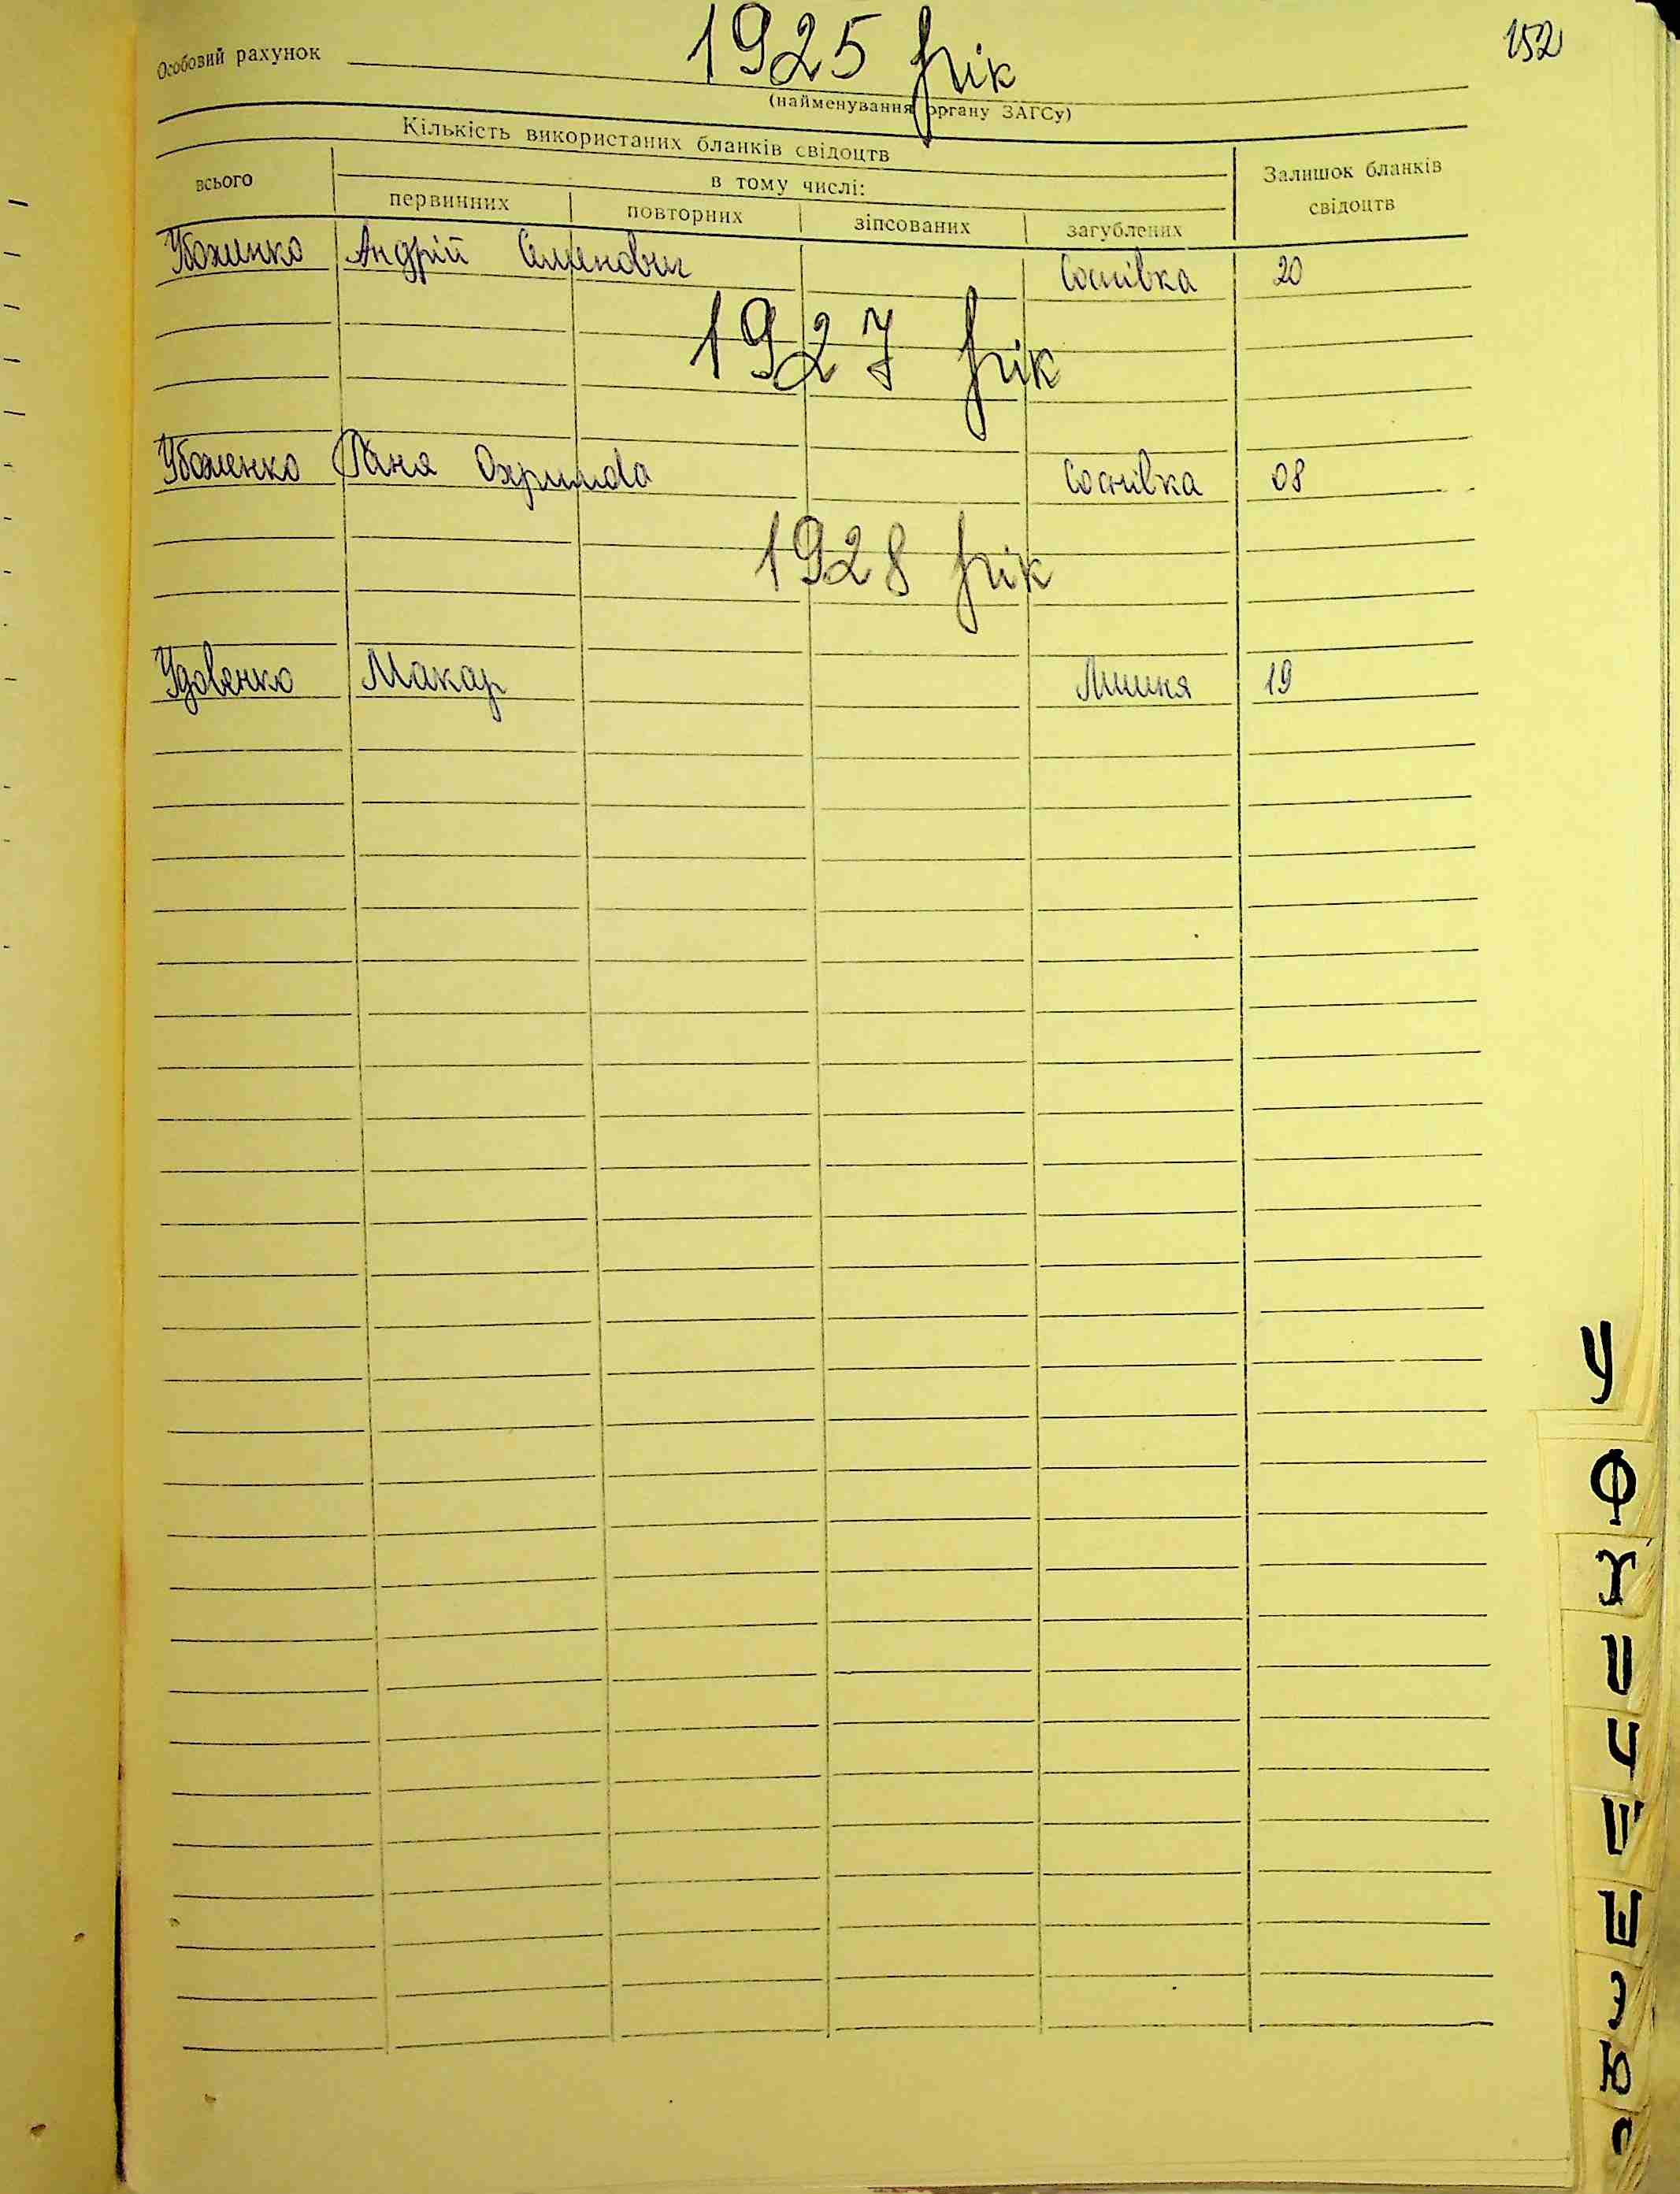 152
Особовий рахунок 1925 рік
(найменування органу ЗАГСу)
Кількість використаних бланків свідоцтв
всього
в тому числі:
Залишок бланків свідоцтв
первинних повторних зіпсованих загублених
Убоженко Андрій Семенович Соснівка 20
1927 рік
Убоженко Ганя Охрімова Соснівка 08
1928 рік
Удовенко Макар 19
У
Ф
Х
Ц
Ч
Ш
Щ
Э
Ю